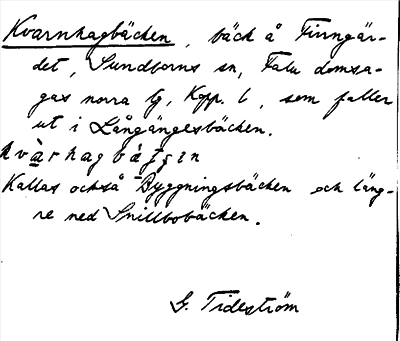 Kvarnhagbäcken, bäck å Finngär-
det, Sundborns sn, Falu domsa-
gas norra tg, Kopp. l, som faller
ut i Långängesbäcken.
kvàrhagbätʃin
Kallas också Byggningsbäcken och läng-
re ned Snillbobäcken.
G. Tideström